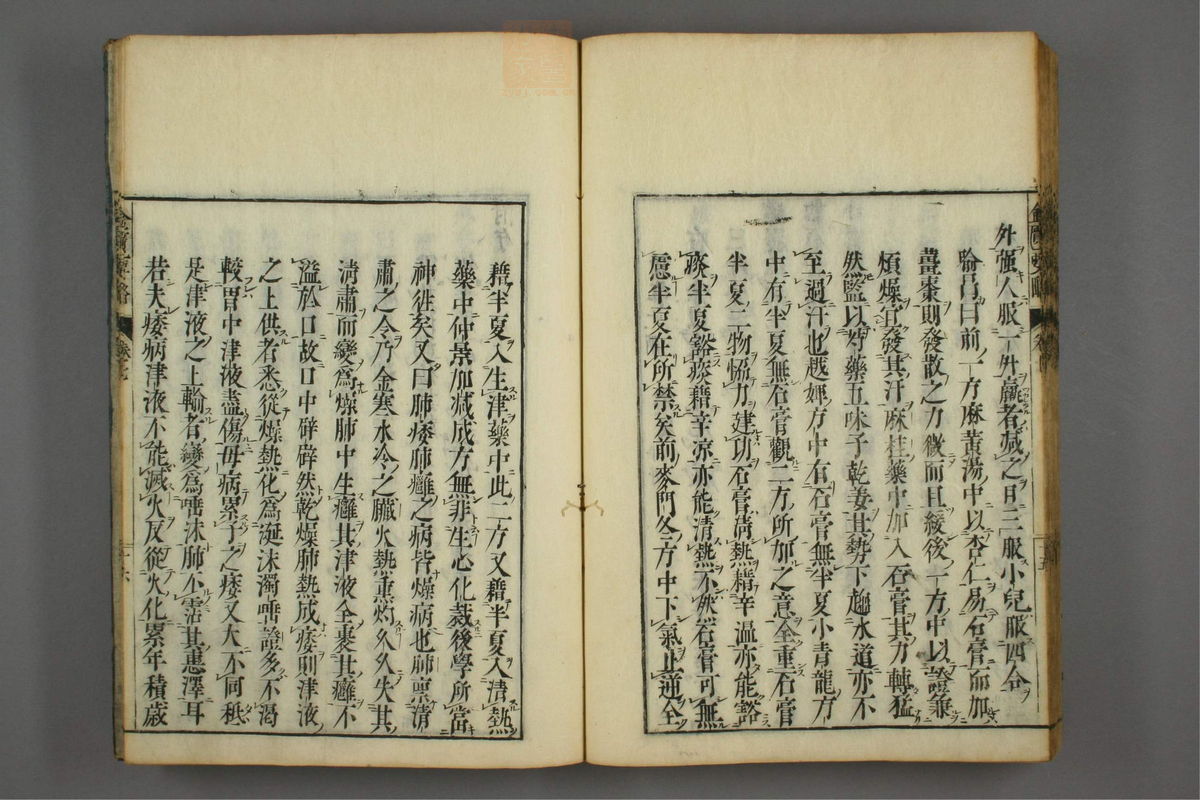 外強人服一升羸者減之日三服小兒服四合
喻昌曰前一方麻黃湯中以杏仁易石膏而加
薑棗則發散之力微而且緩後一方中以證兼
煩燥宜發其汗麻桂藥中加入石膏其力轉猛
然監以芍藥五味子乾姜其勢下趨水道亦不
至過汗也越婢方中有石膏無半夏小青龍方
中有半夏無石膏觀二方所加之意全重石膏
半夏二物協力建功石膏清熱藉辛溫亦能豁
痰半夏豁痰藉辛涼亦能清熱不然石膏可無
慮半夏在所禁矣前麥門冬方中下氣止逆全
藉半夏入生津藥中此二方又藉半夏入清熱
藥中仲景加減成方無非生心化裁後學所當
神徃矣又曰肺痿肺癰之病皆燥病也肺稟清
肅之令乃金寒水冷之臟火熱熏灼久久失其
清肅而變為燥肺中生癰其津液全裹其癰不
溢於口故口中辟辟然乾燥肺熱成痿則津液
之上供者悉從燥熱化為涎沫濁唾證多不渴
較胃中津液盡傷母病累子之痿又大不同秪
是津液之上輸者變為唾沫肺不霑其惠澤耳
若夫痿病津液不能滅火反從火化累年積歲
金匱要略